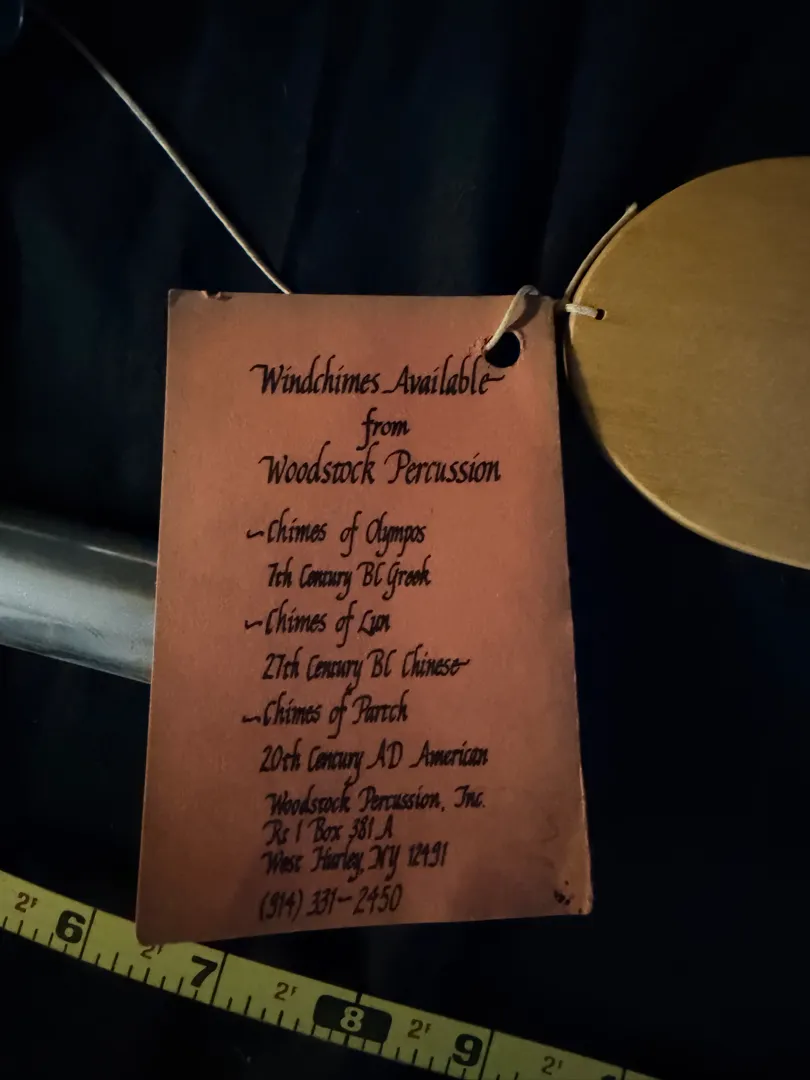 Windchimes Available
from
Woodstock Percussion
~Chimes of Olympos
7th Century BC Greek
~Chimes of Lun
27th Century BC Chinese
~Chimes of Partch
20th Century AD American
Woodstock Percussion, Inc.
Rs 1 Box 381 A
West Hurley, NY 12491
(914) 331-2450
2F 6 2F 7 2F 8 2F 9 2F